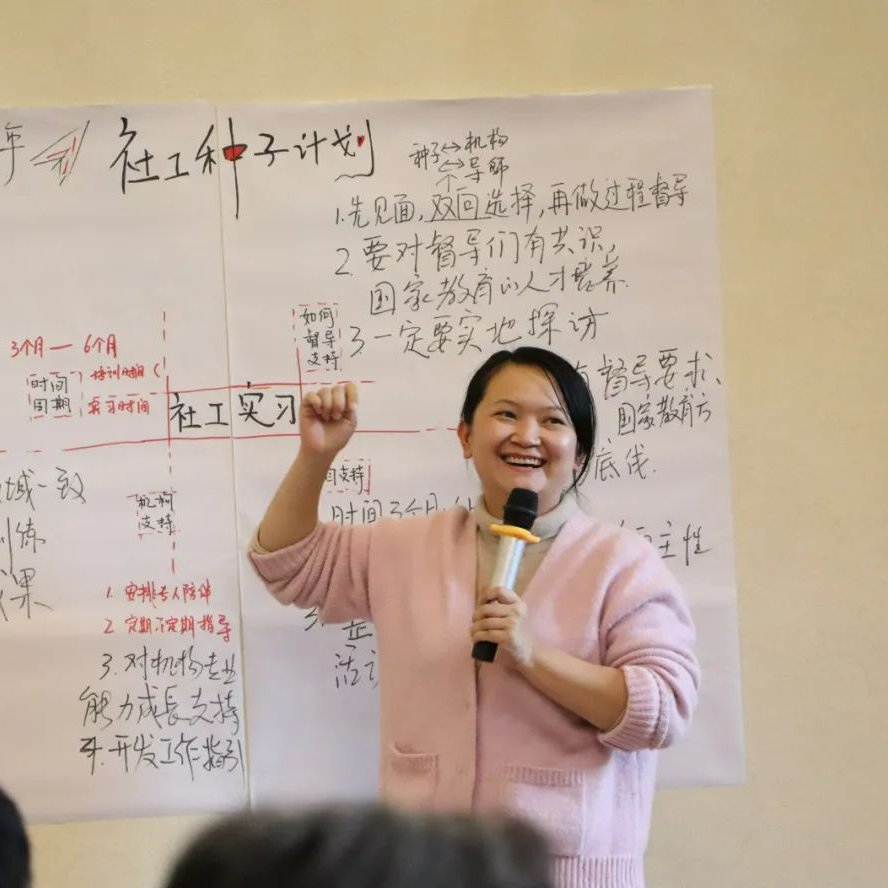 年
社工种子计划
种子↔机构
↔导师
1.先见面,双向选择,再做过程督导
2.要对督导们有共识,
国家教育的人才培养.
3.一定要实地探访
如何
督导
支持
3个月—6个月
时间
周期
培训时间
实习时间
社工实习
督导要求、
国家教育方
底线.
域一致
训练
机构
支持
支持
时间3个月
主性
1.安排专人陪伴
2 定期不定期指导
3.对机构专业
能力成长支持
4.开发工作指引
3.